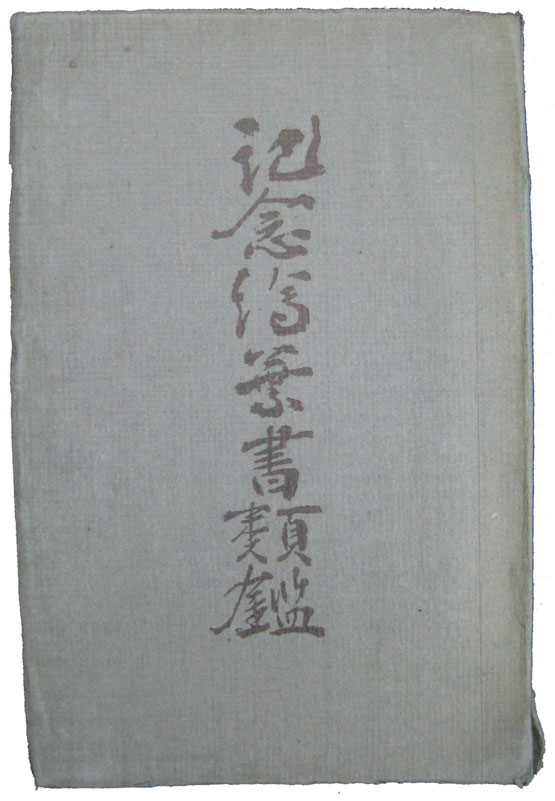 記念絵葉書類鑑